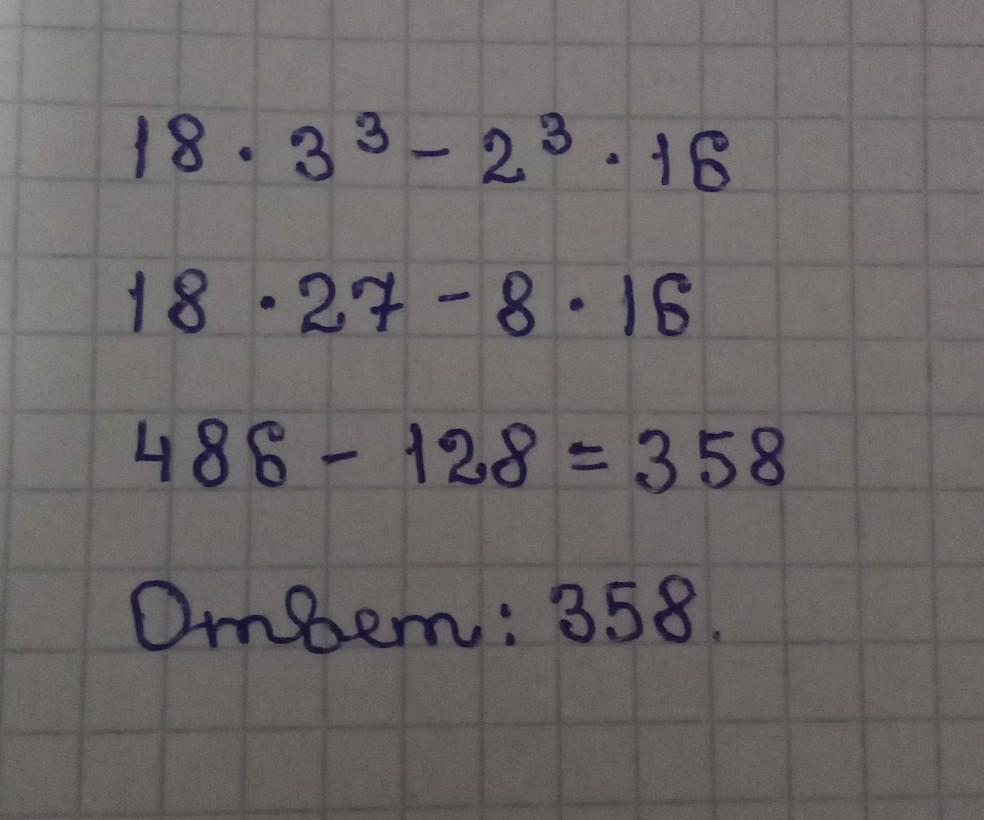 18 · 3³ - 2³ · 16
18 · 27 - 8 · 16
486 - 128 = 358
Ответ: 358.